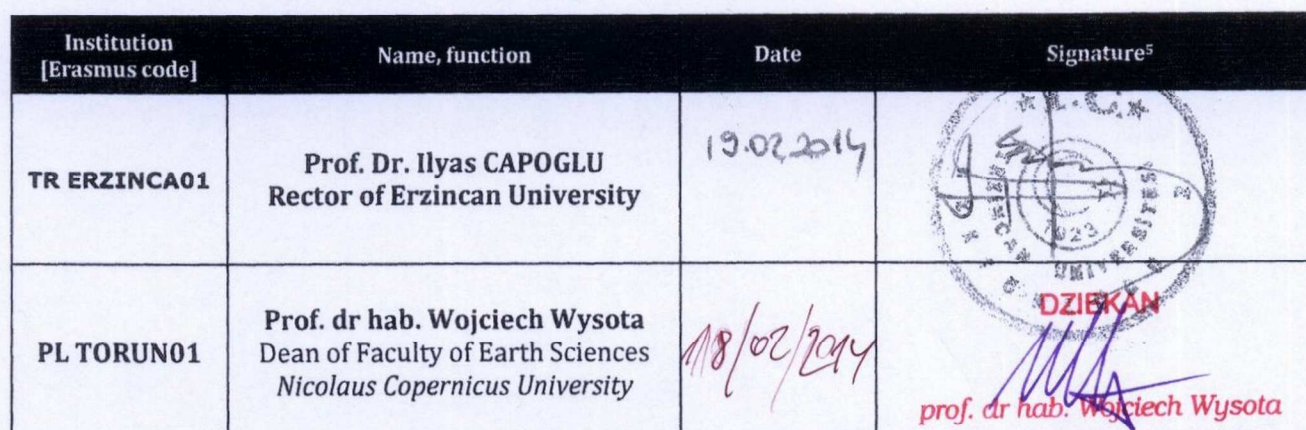 Institution
[Erasmus code]
Name, function
Date
Signature⁵
TR ERZINCA01
Prof. Dr. Ilyas CAPOGLU
Rector of Erzincan University
19.02.2014
T.C.
1923
PL TORUN01
Prof. dr hab. Wojciech Wysota
Dean of Faculty of Earth Sciences
Nicolaus Copernicus University
18/02/2014
DZIEKAN
prof. dr hab. Wojciech Wysota